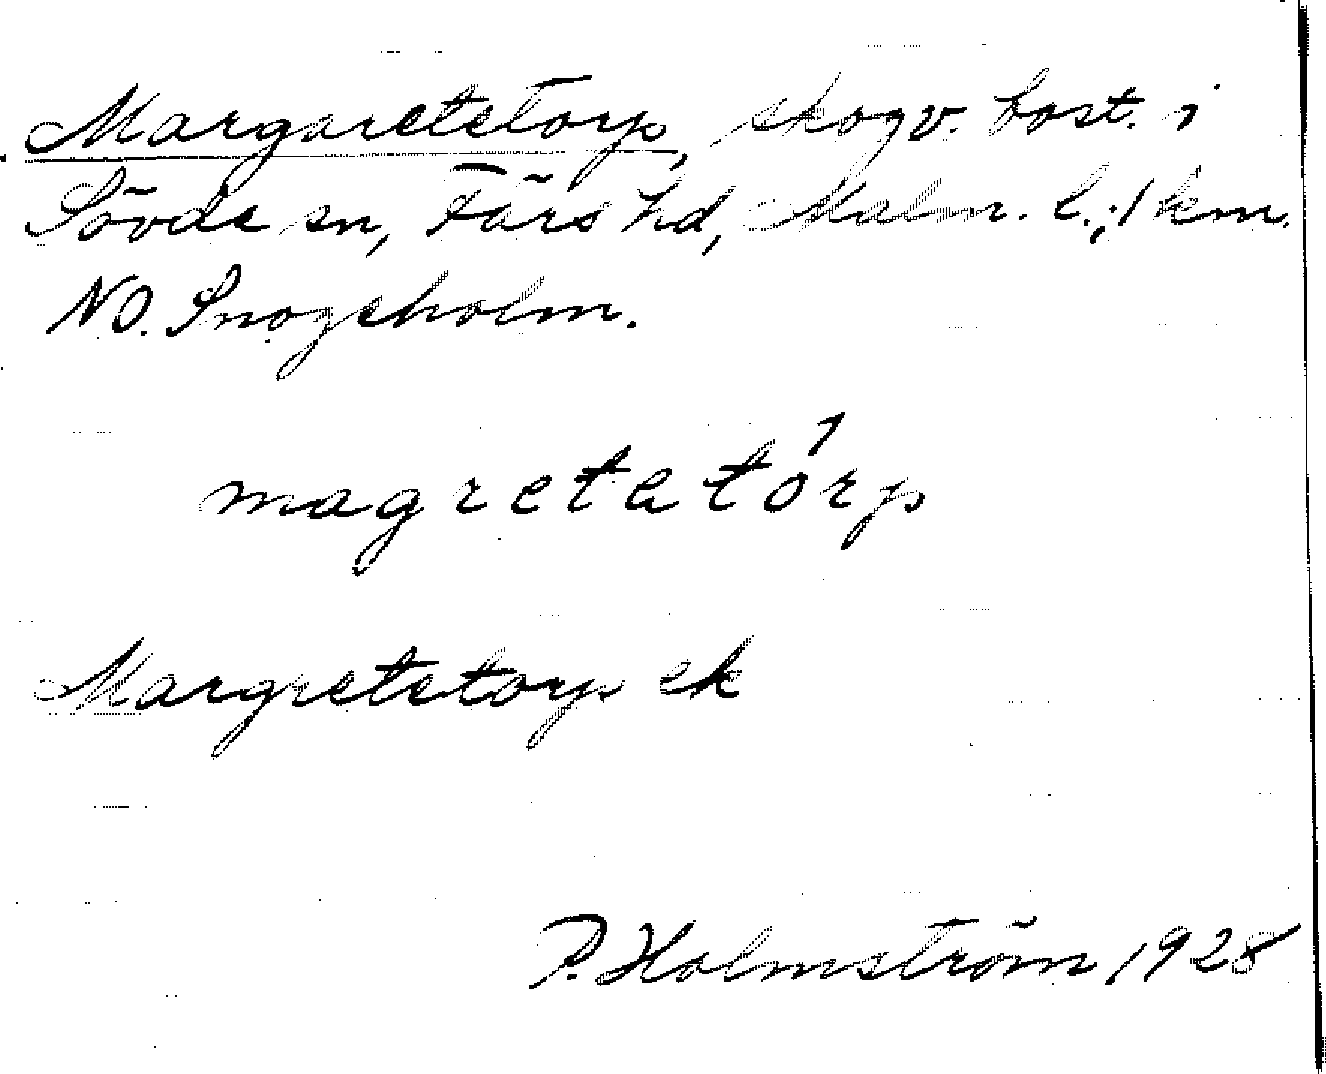 Margaretetorp, skogv. bost. i
Sövde sn, Färs hd, Malm. l.; 1 km.
NO. Snogeholm.
magretatórp
Margretetorp ek
P. Holmström 1928